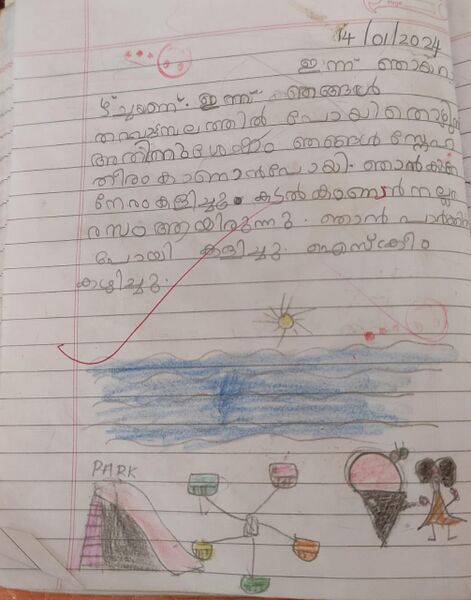 14/01/2024
ഇന്ന് ഞായറാ
ഴ്ചയാണ്. ഇന്ന് ഞങ്ങൾ
പോയി തൊഴുത
അതിനുശേഷം ഞങ്ങൾ സ്നേഹ
തീരം കാണാൻപോയി. ഞാൻ കുറേ
നേരം കളിച്ചു. കടൽ കാണാൻ നല്ല
രസം ആയിരുന്നു. ഞാൻ പാർക്കിൽ
പോയി കളിച്ചു. ഐസ്ക്രീം
കഴിച്ചു.
PARK